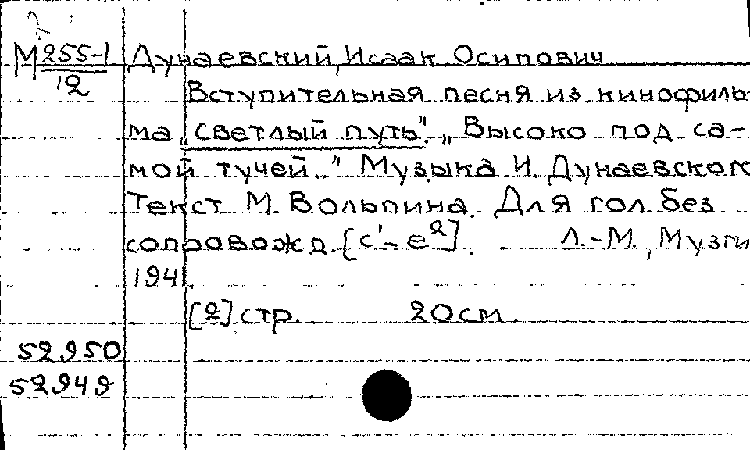 М 255-1 Дунаевский, Исаак Осипович
12
Вступительная песня из кинофиль-
ма „Светлый путь". „Высоко под са-
мой тучей.." Музыка И. Дунаевского
Текст М. Вольпина. Для гол. без
сопровожд. [c¹-e²]. Л.-М., Музги
1941.
[2] стр. 20 см
52950
52949